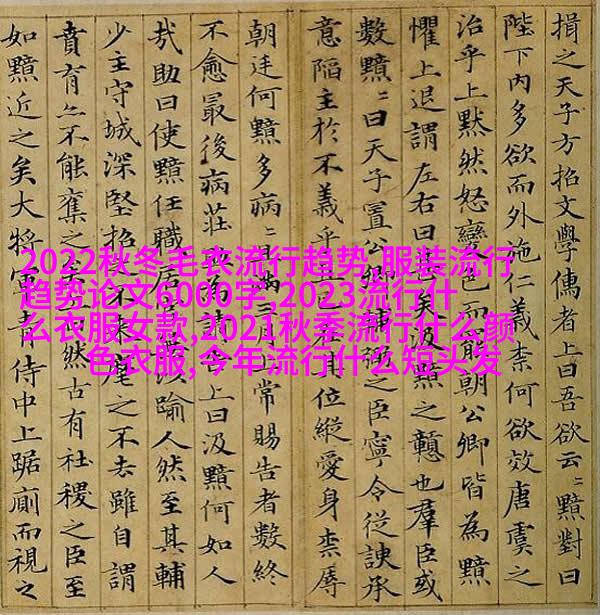 揖之天子方招文學儒者上曰吾欲云〻黯對曰
陛下內多欲而外施仁義柰何欲效唐虞之
治乎上黙然怒變色而罷朝公卿皆為黯
懼上退謂左右曰甚矣汲黯之戇也羣臣或
數黯〻曰天子置公卿輔弼之臣寧令從諛承
意陷主於不義乎且已在其位縱愛身柰辱
朝廷何黯多病〻且滿三月上常賜告者數終
不愈最後病莊助為請告上曰汲黯何如人
㢤助曰使黯任職居官無以踰人然至其輔
少主守城深堅招之不來麾之不去雖自謂
賁育亦不能奪之矣上曰然古有社稷之臣至
如黯近之矣大將軍青侍中上踞廁而視之
2022秋冬毛衣流行趋势,服装流行
趋势论文6000字,2023流行什
么衣服女款,2021秋季流行什么颜
色衣服,今年流行什么短头发